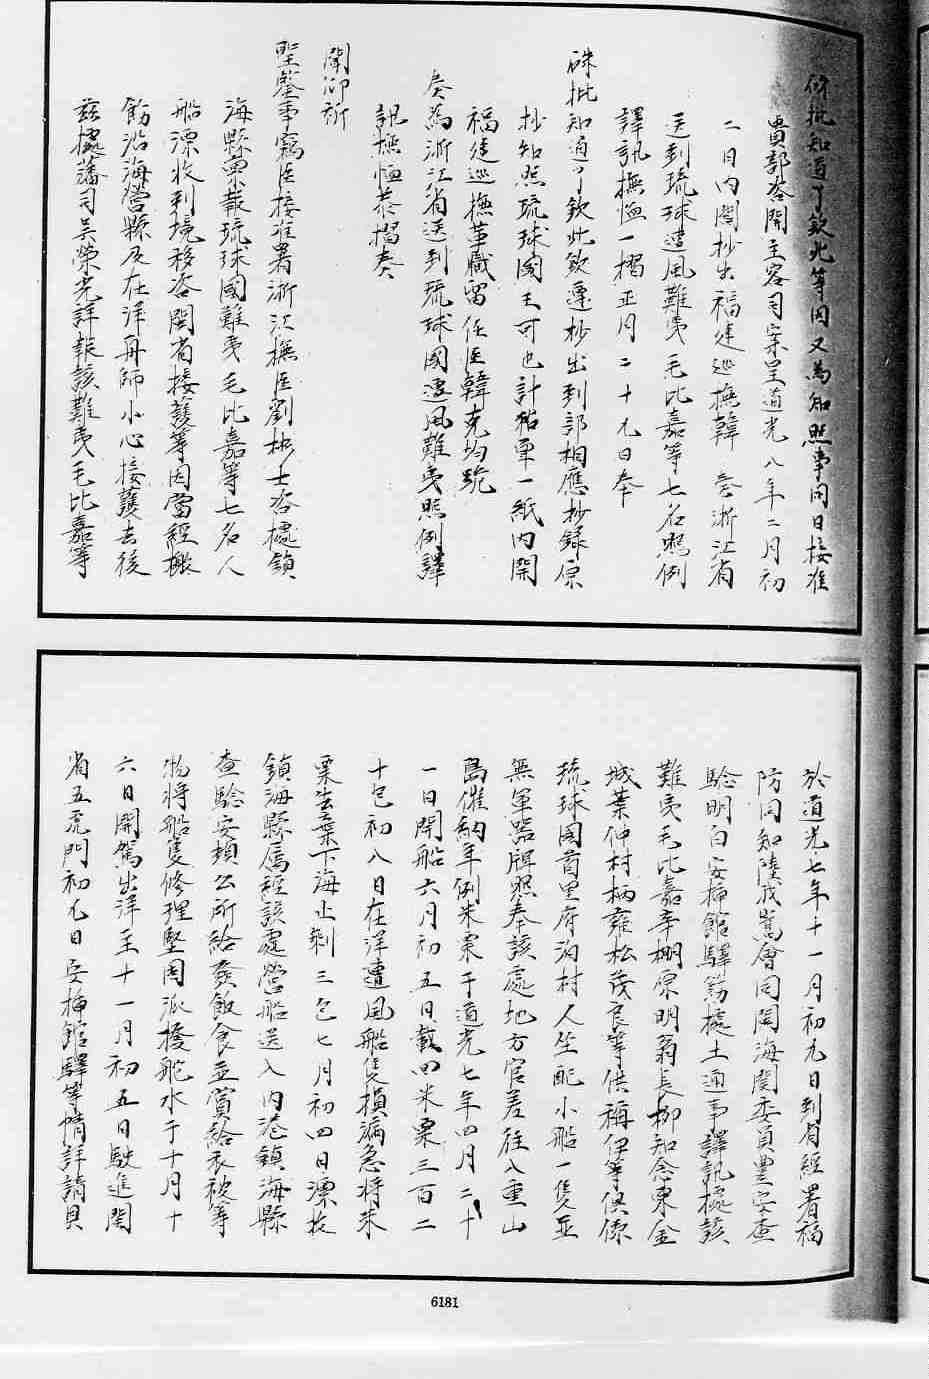 硃批知道了欽此等因又為知照事同日接准
貴部咨開主客司案呈道光八年二月初
二日內閣抄出福建巡撫韓 奏浙江省
送到琉球遭風難夷毛比嘉等七名照例
譯訊撫恤一摺正月二十九日奉
硃批知道了欽此欽遵抄出到部相應抄錄原
抄知照琉球國王可也計粘單一紙內開
福建巡撫革職留任臣韓克均跪
奏為浙江省送到琉球國遭風難夷照例譯
訊撫恤恭摺奏
聞仰祈
聖鑒事竊臣接准署浙江撫臣劉彬士咨據鎮
海縣稟報琉球國難夷毛比嘉等七名人
船漂收到境移咨閩省接護等因當經檄
飭沿海營縣及在洋舟師小心接護去後
茲據藩司吳榮光詳報該難夷毛比嘉等
於道光七年十一月初九日到省經署福
防同知陸我嵩會同閩海關委員豐安查
驗明白安插館驛飭據土通事譯訊據該
難夷毛比嘉辛棚原明翁長柳知念東金
城葉仲村柄雍松茂良等供稱伊等俱係
琉球國首里府泊村人坐配小船一隻並
無軍器牌照奉該處地方官差往八重山
島催納年例米粟于道光七年四月二十
一日開船六月初五日載四米粟三百二
十包初八日在洋遭風船隻損漏急將米
粟丟棄下海止剩三包七月初四日漂收
鎮海縣屬經該處營船送入內港鎮海縣
查驗安頓公所給發飯食並賞給衣被等
物將船隻修理堅固派撥舵水于十月十
六日開駕出洋至十一月初五日駛進閩
省五虎門初九日安插館驛等情詳請具
6181